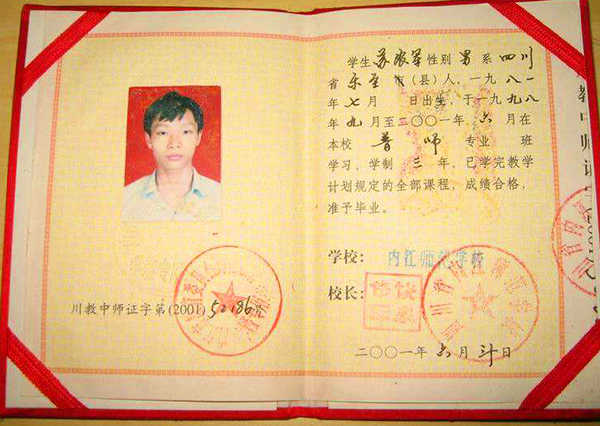 川教中师证字第(2001)52186号
学生 苏 军性别 男 系 四川
省 乐至 市(县)人,一九八一
年 七 月 日出生,于一九九八
年 九 月至二〇〇一年 六 月在
本校 普师 专业 班
学习,学制 三 年,已学完教学
计划规定的全部课程,成绩合格,
准予毕业。
学校: 内江师范学校
校长:
二〇〇一年 六 月 日